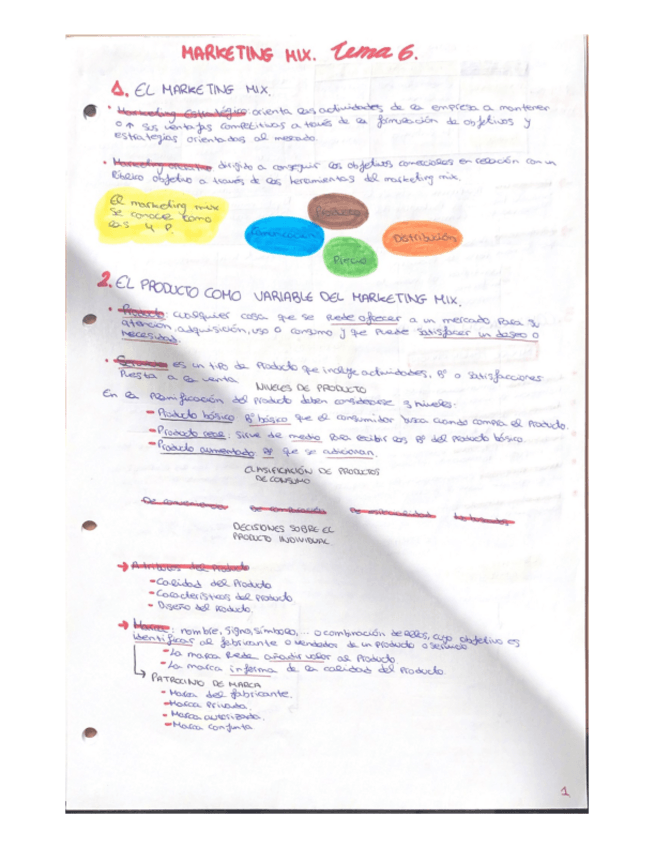 MARKETING MIX. Tema 6.
1. EL MARKETING MIX.
• Marketing estratégico: orienta las actividades de la empresa a mantener
o ↑ sus ventajas competitivas a través de la formulación de objetivos y
estrategias orientadas al mercado.
• Marketing dirigido a conseguir los objetivos comerciales en relación con un
público objetivo a través de las herramientas del marketing mix.
El marketing mix
se conoce como
las 4 P.
Producto
Comunicación
Distribución
Precio
2. EL PRODUCTO COMO VARIABLE DEL MARKETING MIX.
• Producto: cualquier cosa que se puede ofrecer a un mercado para su
atención, adquisición, uso o consumo y que puede satisfacer un deseo o
necesidad.
• Servicio es un tipo de producto que incluye actividades, Bº o satisfacciones
puesta a la venta
NIVELES DE PRODUCTO
En la planificación del producto deben considerarse 3 niveles:
- Producto básico: Bº básico que el consumidor busca cuando compra el producto.
- Producto real: sirve de medio para recibir los Bº del producto básico.
- Producto aumentado: Bº que se adicionan.
CLASIFICACIÓN DE PRODUCTOS
DE CONSUMO
De conveniencia De comparación De especialidad No buscados
DECISIONES SOBRE EL
PRODUCTO INDIVIDUAL
→ Atributos del producto
- Calidad del producto
- Características del producto
- Diseño del producto.
→ Marca: nombre, signo, símbolo, ... o combinación de ellos, cuyo objetivo es
identificar al fabricante o vendedor de un producto o servicio
- La marca puede añadir valor al producto
- La marca informa de la calidad del producto.
↳ PATROCINIO DE MARCA
- Marca del fabricante.
- Marca privada.
- Marca autorizada.
- Marca conjunta
1